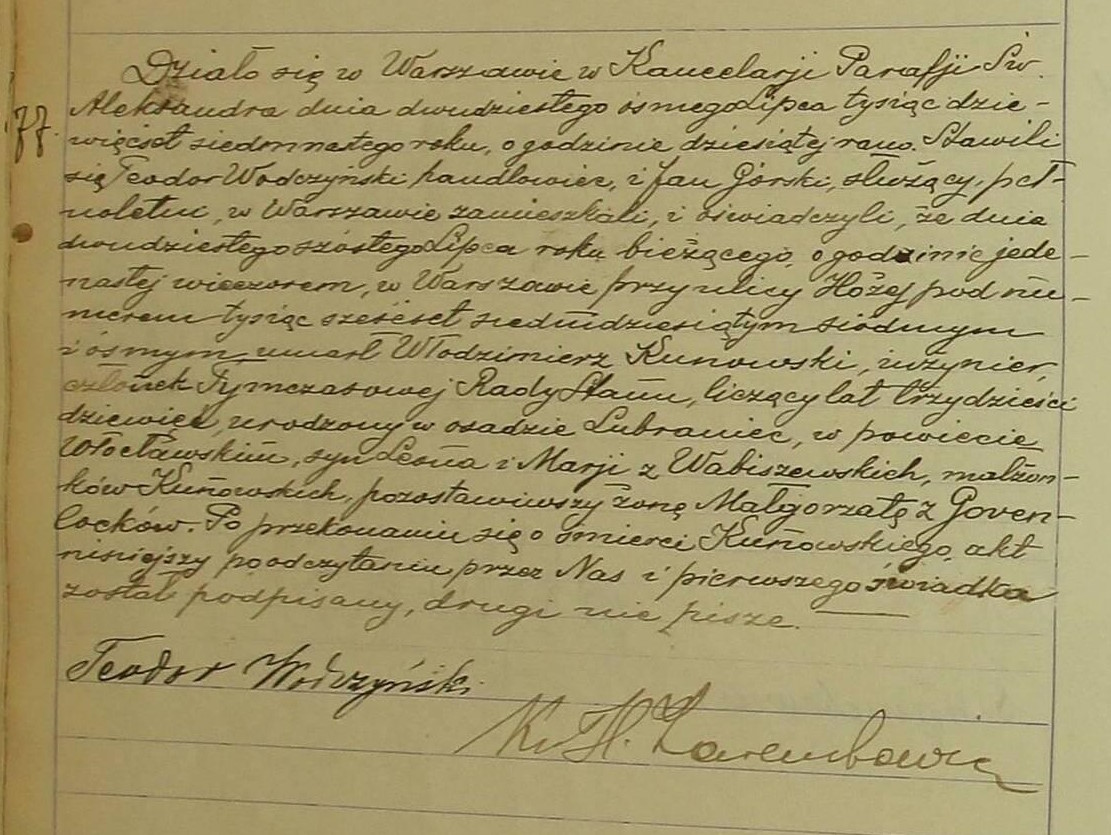 Działo się w Warszawie w Kancelarji Parafji Św.
Aleksandra dnia dwudziestego ósmego Lipca tysiąc dzie-
77.
więćset siedmnastego roku, o godzinie dziesiątej rano. Stawili
się Teodor Wodczyński handlowiec, i Jan Górski, służący, peł-
noletni, w Warszawie zamieszkali, i oświadczyli, że dnia
dwudziestego szóstego Lipca roku bieżącego, o godzinie jede-
nastej wieczorem, w Warszawie przy ulicy Hożej pod nu-
merem tysiąc sześćset siedmdziesiątym siódmym
i ósmym, umarł Włodzimierz Kunowski, inżynier,
członek Tymczasowej Rady Stanu, liczący lat trzydzieści
dziewięć, urodzony w osadzie Lubraniec, w powiecie
Włocławskim, syn Leona i Marji z Wabiszewskich, małżon-
ków Kunowskich, pozostawiwszy żonę Małgorzatę z Goven-
locków. Po przekonaniu się o śmierci Kunowskiego, akt
niniejszy po odczytaniu przez Nas i pierwszego świadka
został podpisany, drugi nie pisze.
Teodor Wodczyński
Ks. H. Zarembowicz